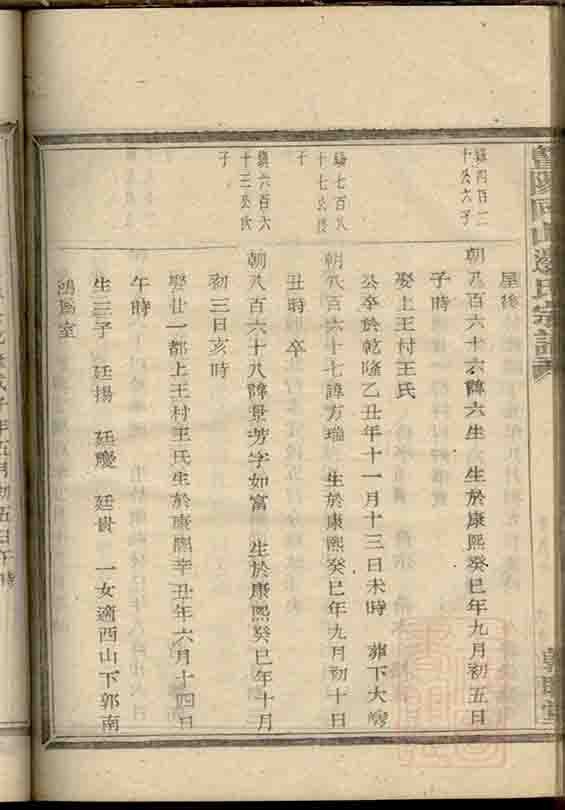 屋後
騄四百二
十公六子
朝八百六十六諱六生 生於康熙癸巳年九月初五日
子時
娶上王村王氏
公卒於乾隆乙丑年十一月十三日未時 葬下大
騄七百八
十七公長
子
朝八百六十七諱方瑞 生於康熙癸巳年九月初十日
丑時 卒
騄六百六
十三公次
子
朝八百六十八諱景芳字如富 生於康熙癸巳年十月
初三日亥時
娶廿一都上王村王氏生於康熙辛丑年六月十四日
午時
生三子 廷揚 廷慶 廷貴 一女適西山下郭南
鴻為室